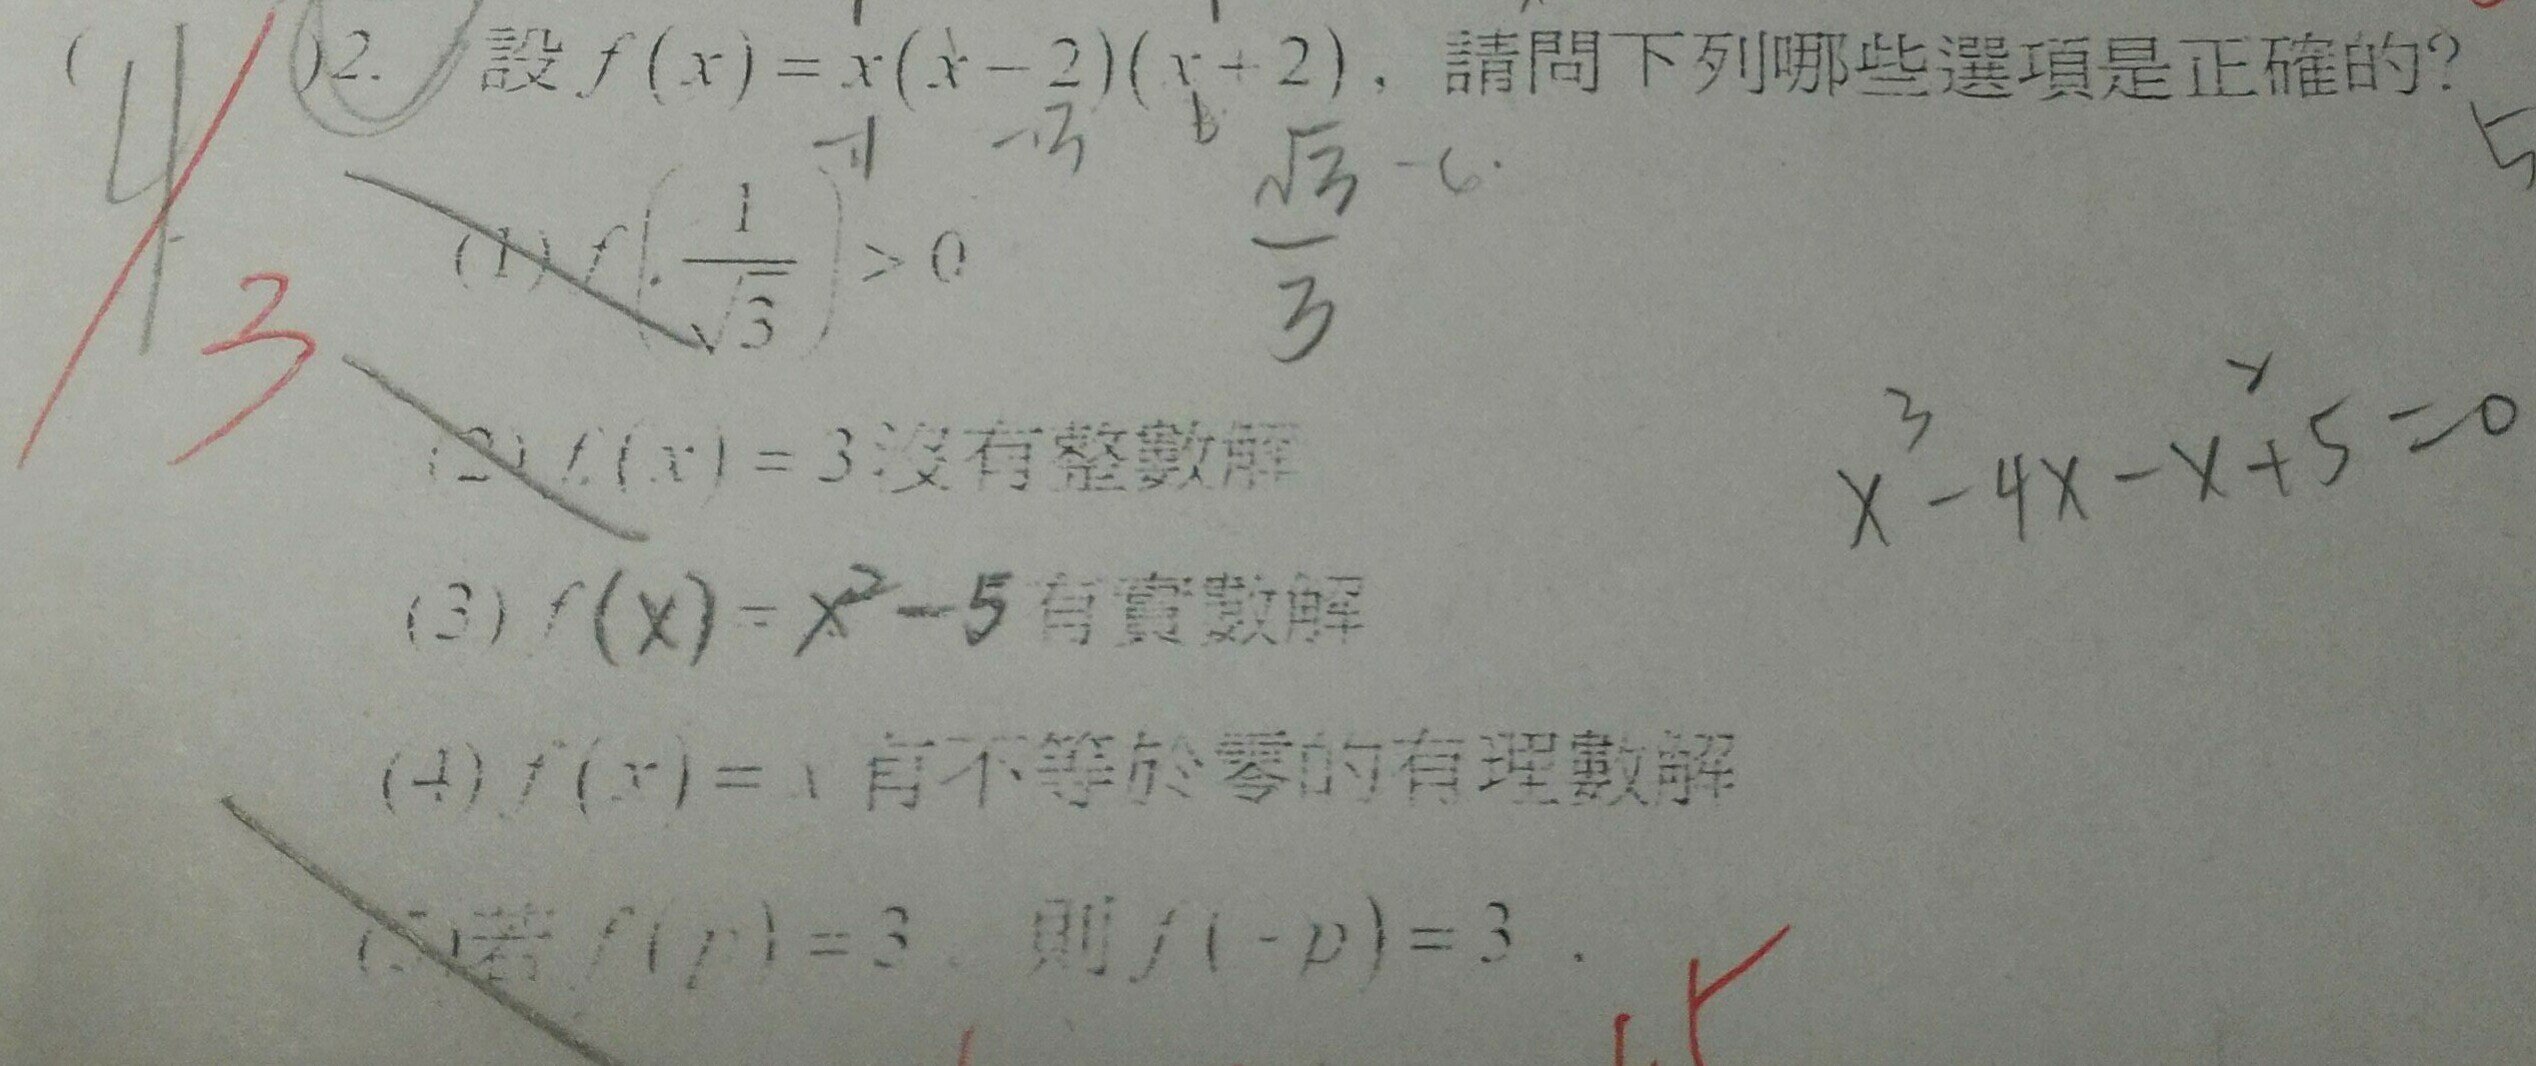 ( 4 )2. 設 f(x)=x(x-2)(x+2), 請問下列哪些選項是正確的?
3
-1 -3
√3/3 -6.
5
(1) f(1/√3) > 0
(2) f(x) = 3 沒有整數解
x³-4x-x²+5=0
(3) f(x) = x²-5 有實數解
(4) f(x) = x 有不等於零的有理數解
(5)若 f(p) = 3, 則 f(-p) = 3.